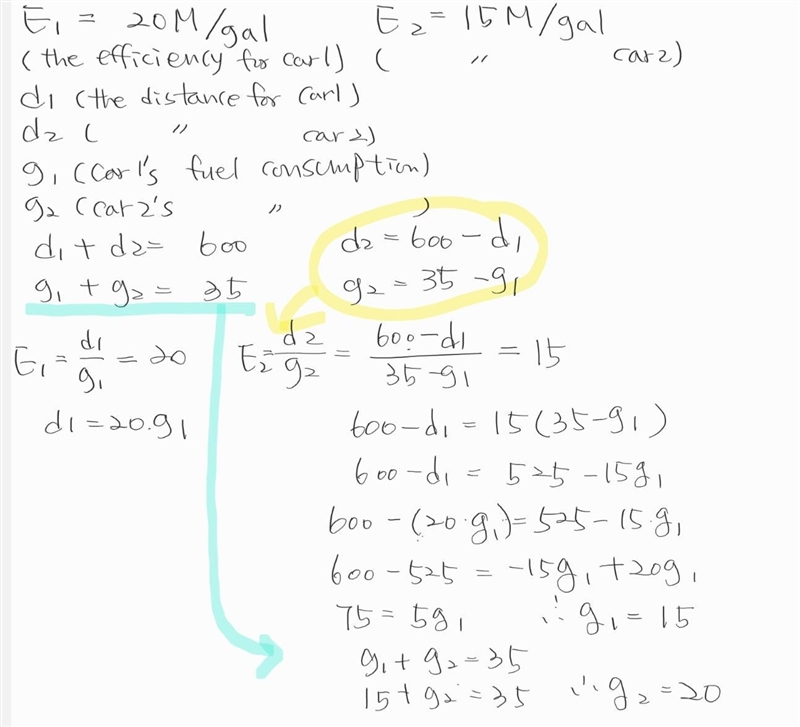 E₁ = 20M/gal E₂ = 15M/gal
(the efficiency for car1) ( 〃 car2)
d1 (the distance for car1)
d2 ( 〃 car2)
g₁ (car1's fuel consumption)
g₂ (car2's 〃 )
d₁ + d2 = 600 d₂ = 600 - d₁
g₁ + g₂ = 35 g₂ = 35 - g₁
E₁ = d₁/g₁ = 20 E₂ = d2/g₂ = 600-d₁/35-g₁ = 15
d1 = 20.g₁ 600-d₁ = 15(35-g₁)
600-d₁ = 525-15g₁
600-(20·g₁) = 525-15·g₁
600-525 = -15g₁+20g₁
75 = 5g₁ ∴ g₁ = 15
g₁ + g₂ = 35
15 + g₂ = 35 ∴ g₂ = 20